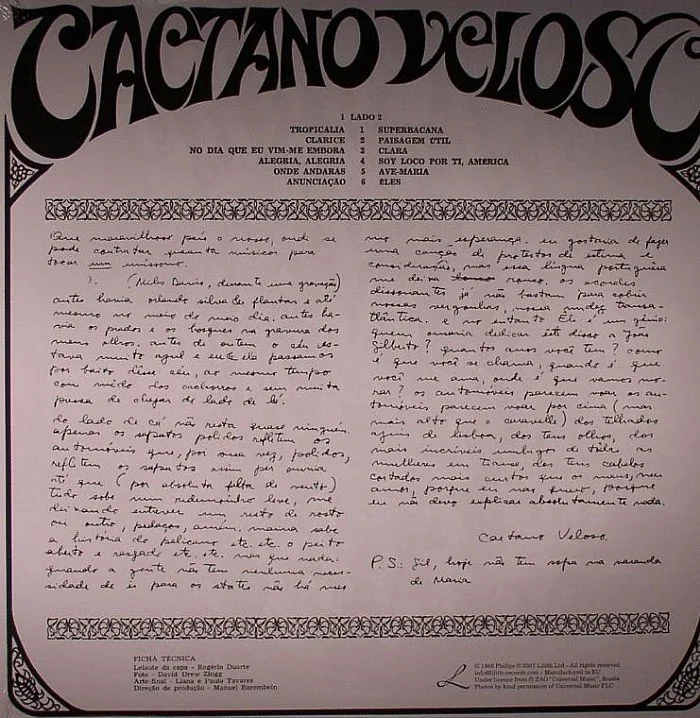 CAETANO VELOSO
1 LADO 2
TROPICALIA 1 SUPERBACANA
CLARICE 2 PAISAGEM ÚTIL
NO DIA QUE EU VIM-ME EMBORA 3 CLARA
ALEGRIA, ALEGRIA 4 SOY LOCO POR TI, AMÉRICA
ONDE ANDARÁS 5 AVE-MARIA
ANUNCIAÇÃO 6 ÊLES
Que maravilhoso país o nosso, onde se
pode contratar quarenta músicos para
tocar um uníssono.
). (Miles Davis, durante uma gravação)
antes havia orlando silva & flautas e até
mesmo no meio do meio dia. antes ha-
via os prados e os bosques na gravura dos
meus olhos. antes de ontem o céu es-
tava muito azul e eu e ela passamos
por baixo dêsse céu, ao mesmo tempo
com mêdo dos cachorros e sem muita
pressa de chegar do lado de lá.
do lado de cá não resta quase ninguém.
apenas os sapatos polidos refletem os
automóveis que, por sua vez, polidos,
refletem os sapatos assim per omnia
até que (por absoluta falta de vento)
tudo sobe num redemoinho leve, me
deixando entrever um resto de rosto
ou outro, pedaços, amém. mamma sabe
a história do pelicano etc. etc. o peito
aberto e rasgado etc. etc. mas que nada:
quando a gente não tem nenhuma neces-
sidade de ir para os states não há mes
mo mais esperança. eu gostaria de fazer
uma canção de protesto de estima e
consideração, mas essa língua portuguêsa
me deixa rouco. os acordes
dissonantes já não bastam para cobrir
nossas vergonhas, nossa nudez transa-
tlântica. e no entanto Ele é um gênio:
quem ousaria dedicar este disco a João
Gilberto? quantos anos você tem? como
é que você se chama, quando é que
você me ama, onde é que vamos mo-
rar? os automóveis parecem voar os au-
tomóveis parecem voar por cima (mas
mais alto que o caravelle) dos telhados
azuis de lisboa, dos teus olhos, dos
mais incríveis umbigos de tôdas as
mulheres em transe, dos teus cabelos
cortados mais curtos que os meus, meu
amor, porque eu não quero, porque
eu não devo explicar absolutamente nada.
Caetano Veloso.
P.S.: Gil, hoje não tem sopa na varanda
de Maria
FICHA TÉCNICA
Leiaute da capa - Rogério Duarte
Foto - David Drew Zingg
Arte-final - Liana e Paulo Tavares
Direção de produção - Manuel Barembein
L
© 1968 Philips ℗ 2007 Lilith Ltd - All rights reserved
info@lilith-records.com - Manufactured in EU
Under licence from © ZAO "Universal Music", Russia
Photos by kind permission of Universal Music PLC